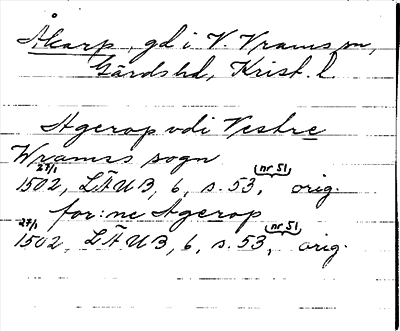 Åkarp, gd i V. Vrams sn,
Gärds hd, Krist. l.
Agerop vdi Vestre
Wramss sogn
27/1 1502, LÄUB, 6, s. 53, (nr 51) orig.
for:ne Agerop
27/1 1502, LÄUB, 6, s. 53, (nr 51) orig.